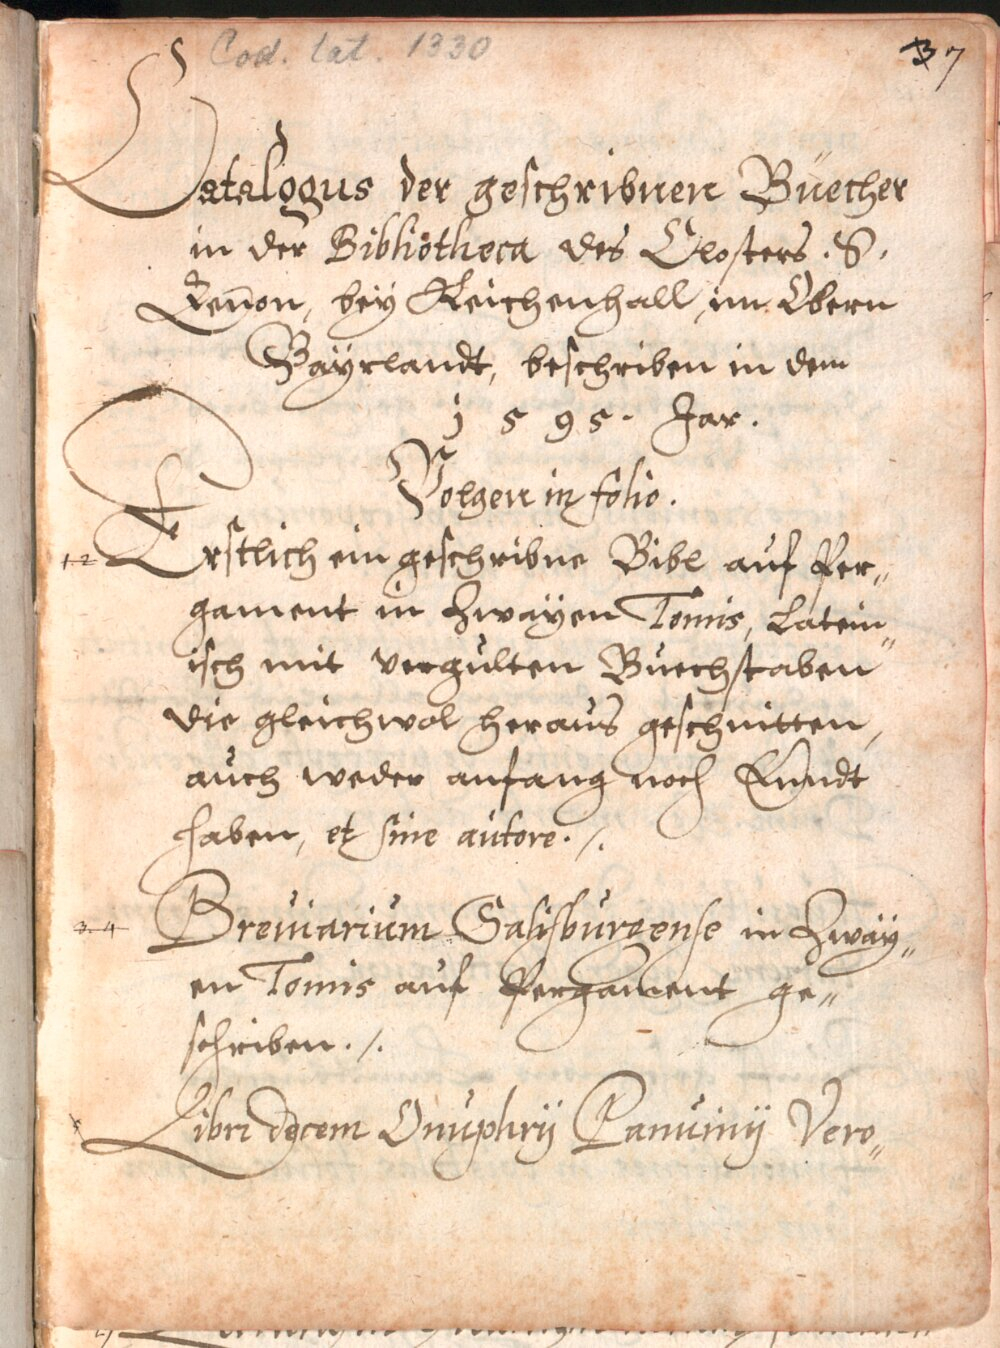 Cod. lat. 1330
37
Catalogus der geschribnen Büecher
in der Bibliotheca des Closters .S.
Zenon, bey Reichenhall, im Obern
Bayrlandt, beschriben in dem
1595. Jar.
Volgen in folio.
1 2 Erstlich ein geschribne Bibl auf Per„
gament in zwayen Tomis, Latein„
isch mit vergulten Buechstaben
die gleichwol heraus geschnitten,
auch weder anfang noch Enndt
haben, et sine autore. /.
3. 4 Breuiarium Salisburgense in zway„
en Tomis auf Pergament ge„
schriben. /.
5 Libri decem Onuphrij Panuinij Vero„